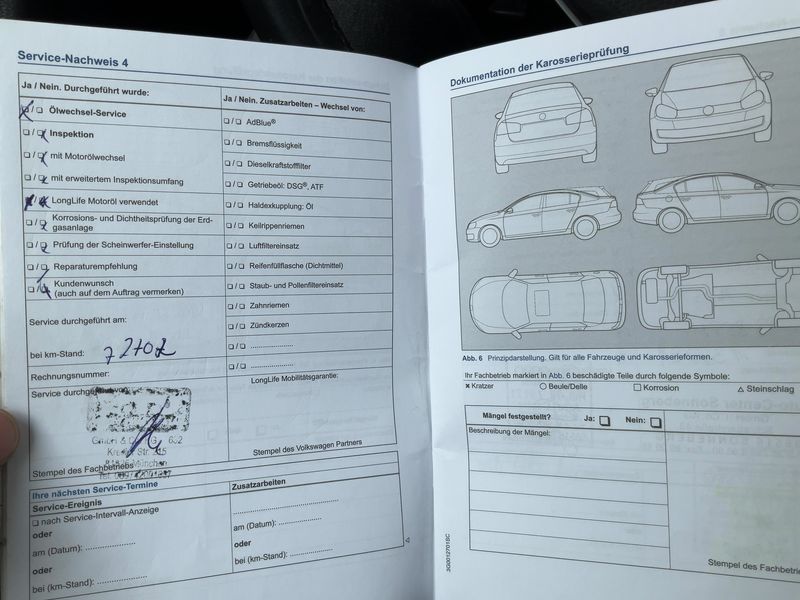 Service-Nachweis 4
Ja / Nein. Durchgeführt wurde:
❏ / ❏ Ölwechsel-Service
❏ / ❏ Inspektion
❏ / ❏ mit Motorölwechsel
❏ / ❏ mit erweitertem Inspektionsumfang
❏ / ❏ LongLife Motoröl verwendet
❏ / ❏ Korrosions- und Dichtheitsprüfung der Erd-
gasanlage
❏ / ❏ Prüfung der Scheinwerfer-Einstellung
❏ / ❏ Reparaturempfehlung
❏ / ❏ Kundenwunsch
(auch auf dem Auftrag vermerken)
Service durchgeführt am:
bei km-Stand:
Rechnungsnummer:
Service durchgeführt von:
München
Stempel des Fachbetriebs
Ja / Nein. Zusatzarbeiten – Wechsel von:
❏ / ❏ AdBlue®
❏ / ❏ Bremsflüssigkeit
❏ / ❏ Dieselkraftstofffilter
❏ / ❏ Getriebeöl: DSG®, ATF
❏ / ❏ Haldexkupplung: Öl
❏ / ❏ Keilrippenriemen
❏ / ❏ Luftfiltereinsatz
❏ / ❏ Reifenfüllflasche (Dichtmittel)
❏ / ❏ Staub- und Pollenfiltereinsatz
❏ / ❏ Zahnriemen
❏ / ❏ Zündkerzen
❏ / ❏ ....................
❏ / ❏ ....................
LongLife Mobilitätsgarantie:
Stempel des Volkswagen Partners
Ihre nächsten Service-Termine
Service-Ereignis
❏ nach Service-Intervall-Anzeige
oder
am (Datum): ....................
oder
bei (km-Stand): ....................
Zusatzarbeiten
..............................
am (Datum): ....................
oder
bei (km-Stand): ....................
Dokumentation der Karosserieprüfung
Abb. 6 Prinzipdarstellung. Gilt für alle Fahrzeuge und Karosserieformen.
Ihr Fachbetrieb markiert in Abb. 6 beschädigte Teile durch folgende Symbole:
× Kratzer ○ Beule/Delle □ Korrosion △ Steinschlag
Mängel festgestellt? Ja: ❏ Nein: ❏
Beschreibung der Mängel:
Stempel des Fachbetrie
3G0012701BC